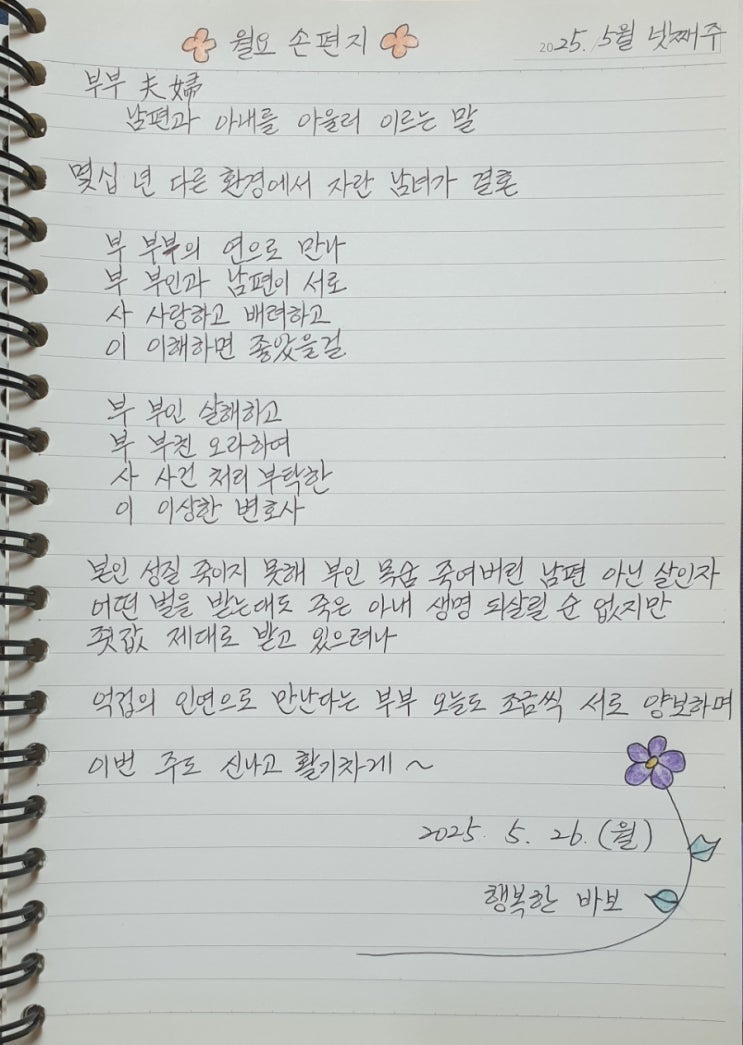 월요 손편지
2025. 5월 넷째주
부부 夫婦
남편과 아내를 아울러 이르는 말
몇십 년 다른 환경에서 자란 남녀가 결혼
부 부부의 연으로 만나
부 부인과 남편이 서로
사 사랑하고 배려하고
이 이해하면 좋았을걸
부 부인 살해하고
부 부친 오라하여
사 사건 처리 부탁한
이 이상한 변호사
본인 성질 죽이지 못해 부인 목숨 죽여버린 남편 아닌 살인자
어떤 벌을 받는대도 죽은 아내 생명 되살릴 순 없지만
죗값 제대로 받고 있으려나
억겁의 인연으로 만난다는 부부 오늘도 조금씩 서로 양보하며
이번 주도 신나고 활기차게 ~
2025. 5. 26. (월)
행복한 바보